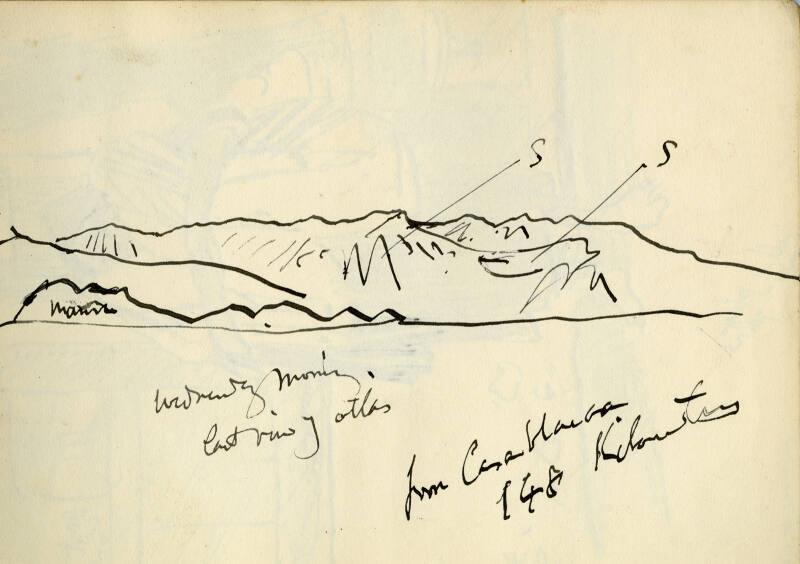 S S
Wednesday Morning.
last view of atlas
from Casablanca
148 Kilometers